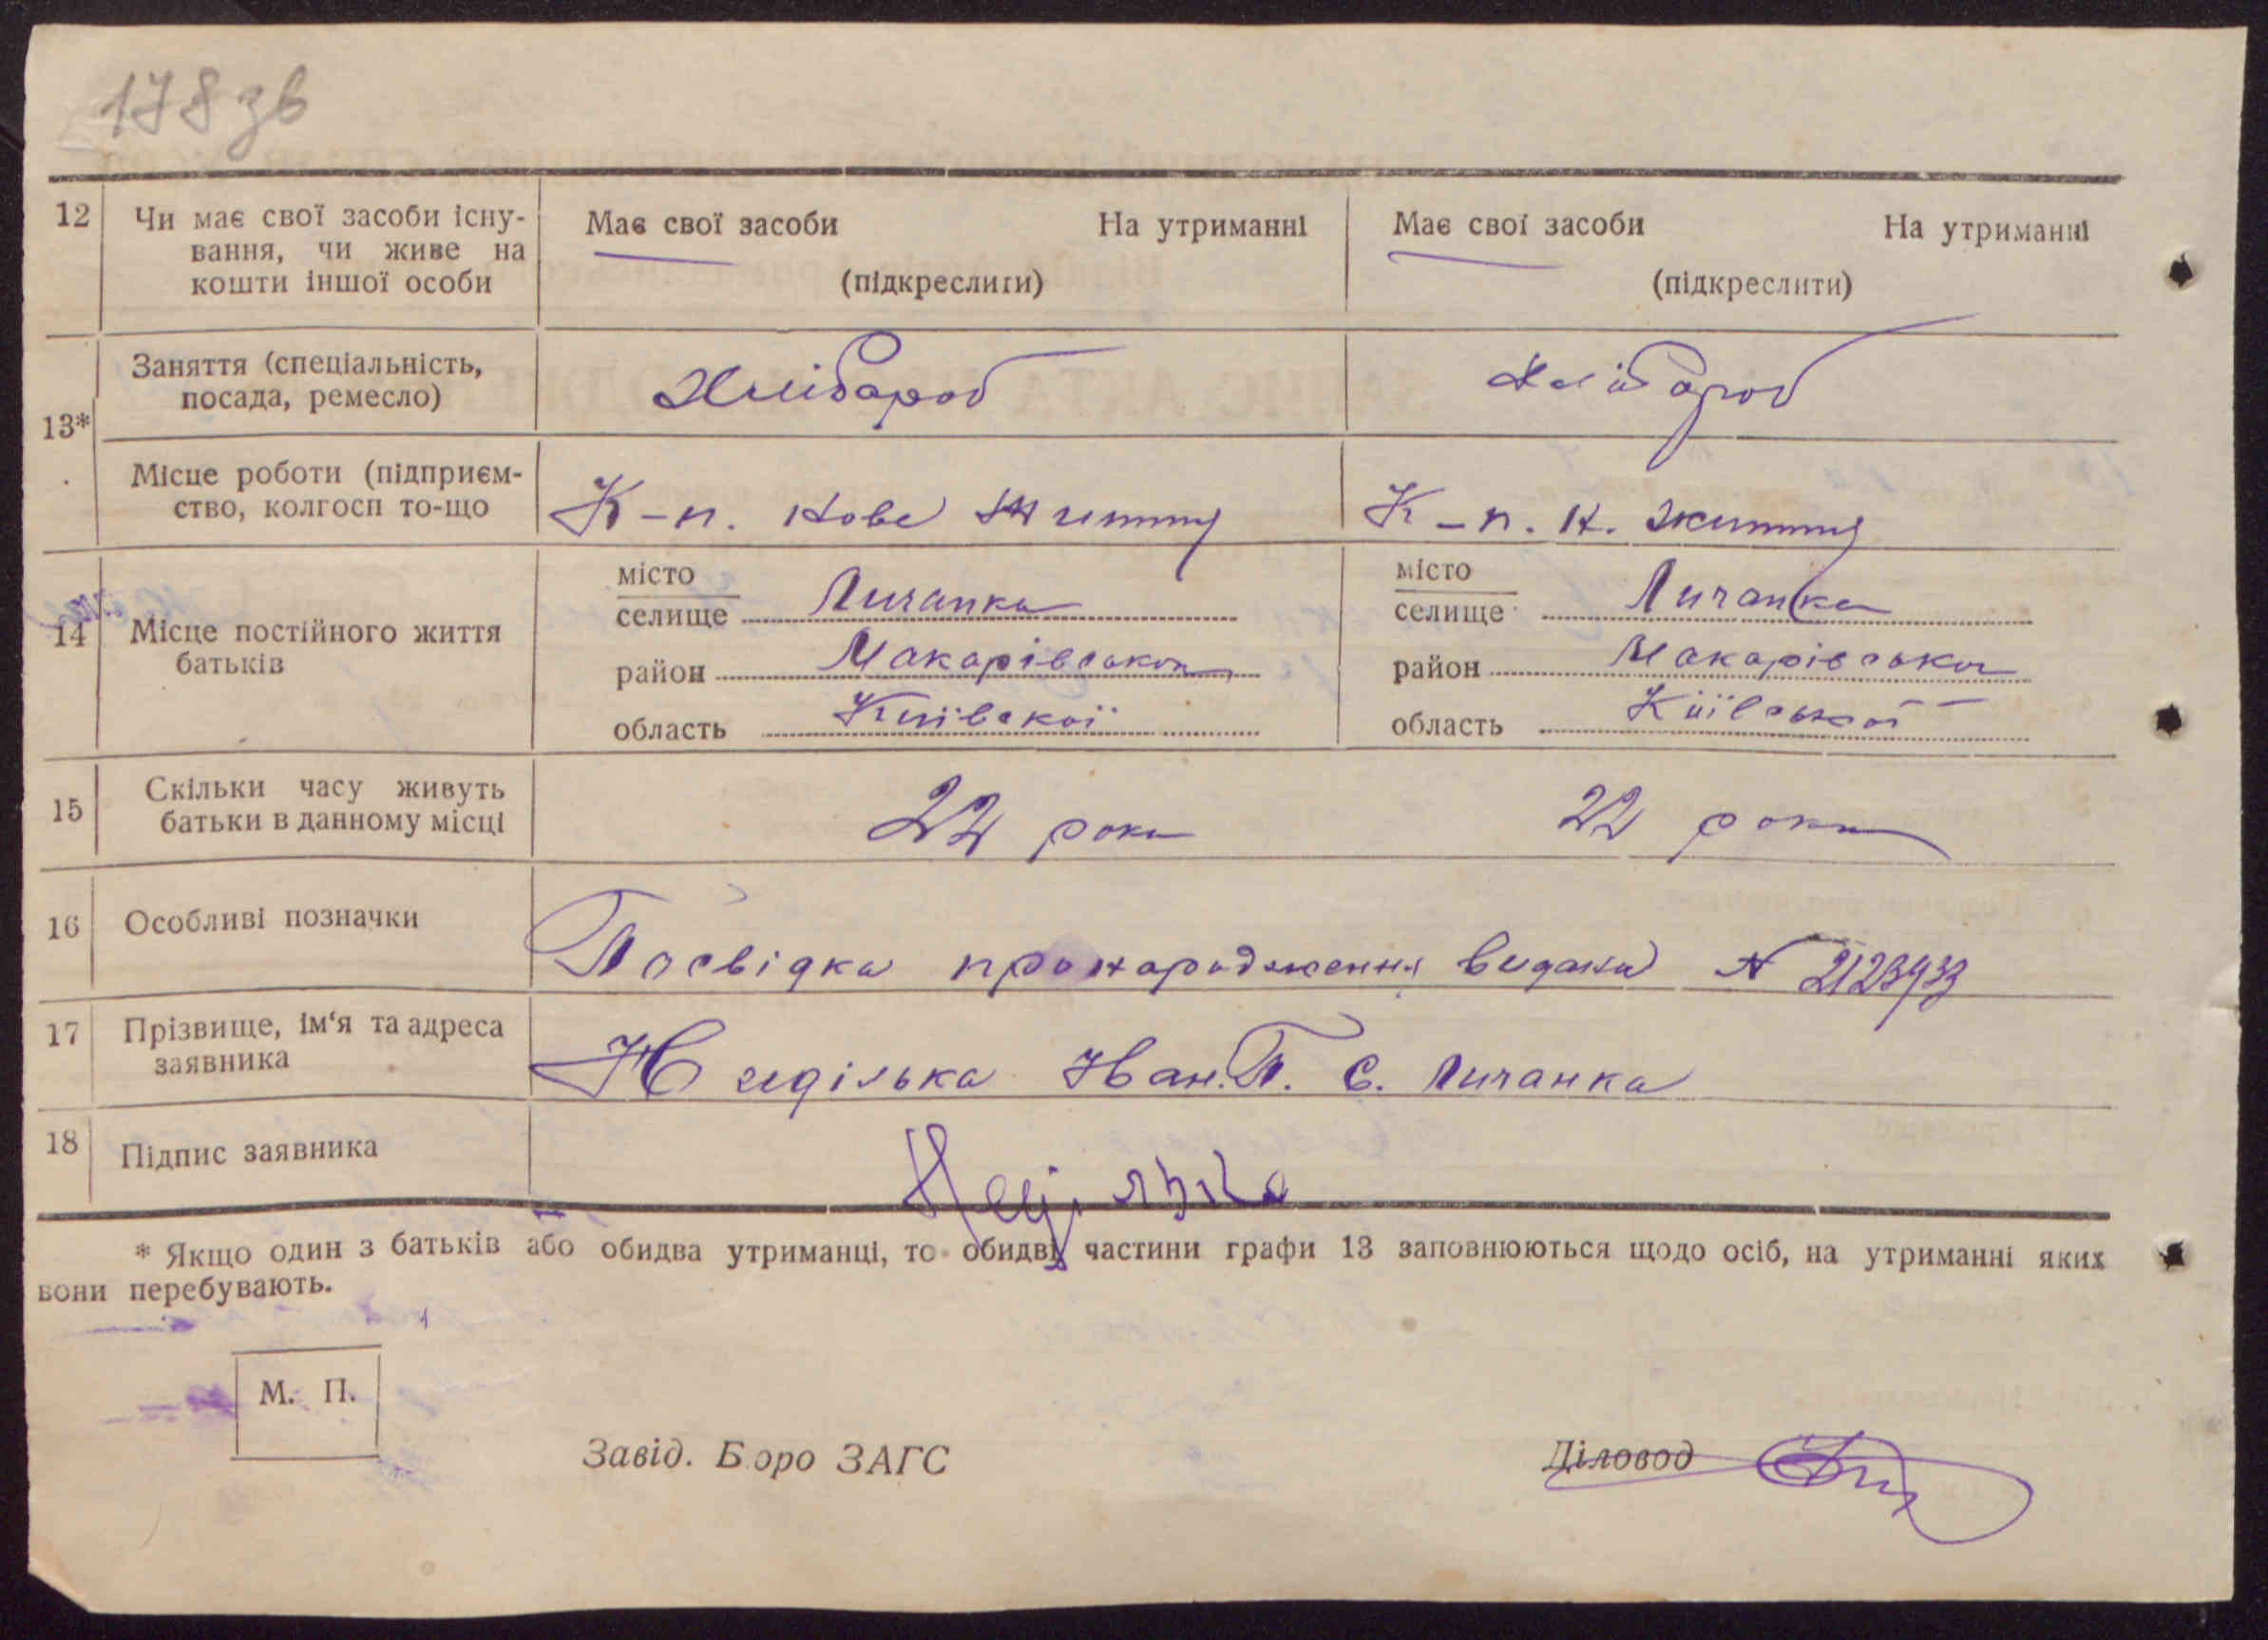 178 зв
12 Чи має свої засоби існу- Має свої засоби На утриманні Має свої засоби На утриманні
вання, чи живе на
кошти іншої особи (підкреслити) (підкреслити)
Заняття (спеціальність, Хлібароб Хлібароб
посада, ремесло)
13*
Місце роботи (підприєм-
ство, колгосп то-що К-п. Нове Життя К-п. Н. Життя
місто місто
селище Личанка селище Личанка
14 Місце постійного життя
батьків район Макарівськом район Макарівськом
область Київскої область Київської
15 Скільки часу живуть
батьки в данному місці 22 роки 22 роки
16 Особливі позначки Посвідка про народження видана N
17 Прізвище, ім‘я та адреса
заявника Неділька Іван. П. С. Личанка
18 Підпис заявника Неділька
* Якщо один з батьків або обидва утриманці, то обидві частини графи 13 заповнюються щодо осіб, на утриманні яких
вони перебувають.
М. П.
Завід. Бюро ЗАГС Діловод